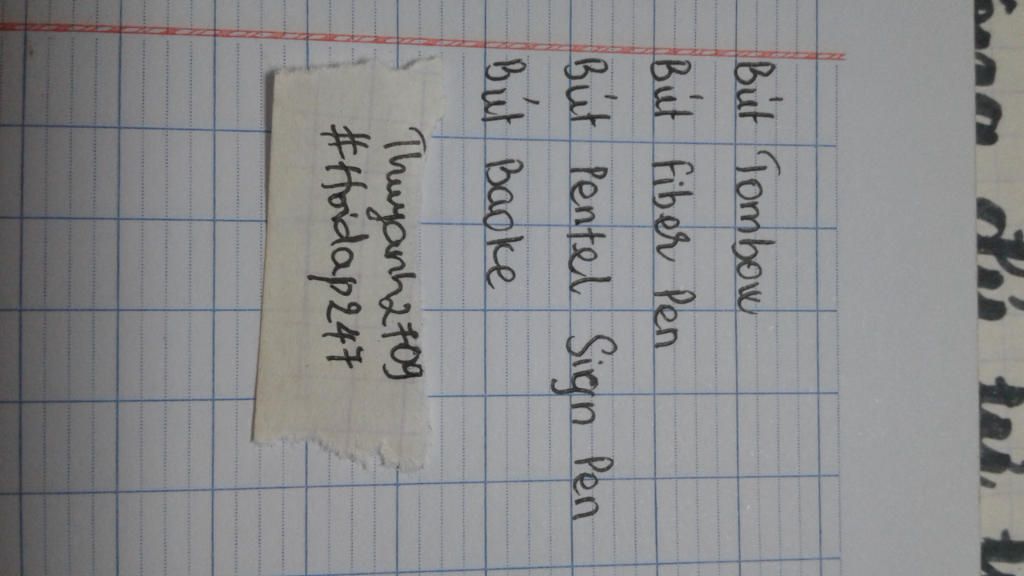 Bút Tombow
Bút Fiber Pen
Bút Pentel Sign Pen
Bút Baoke
Thuyanh2709
#Hoidap247